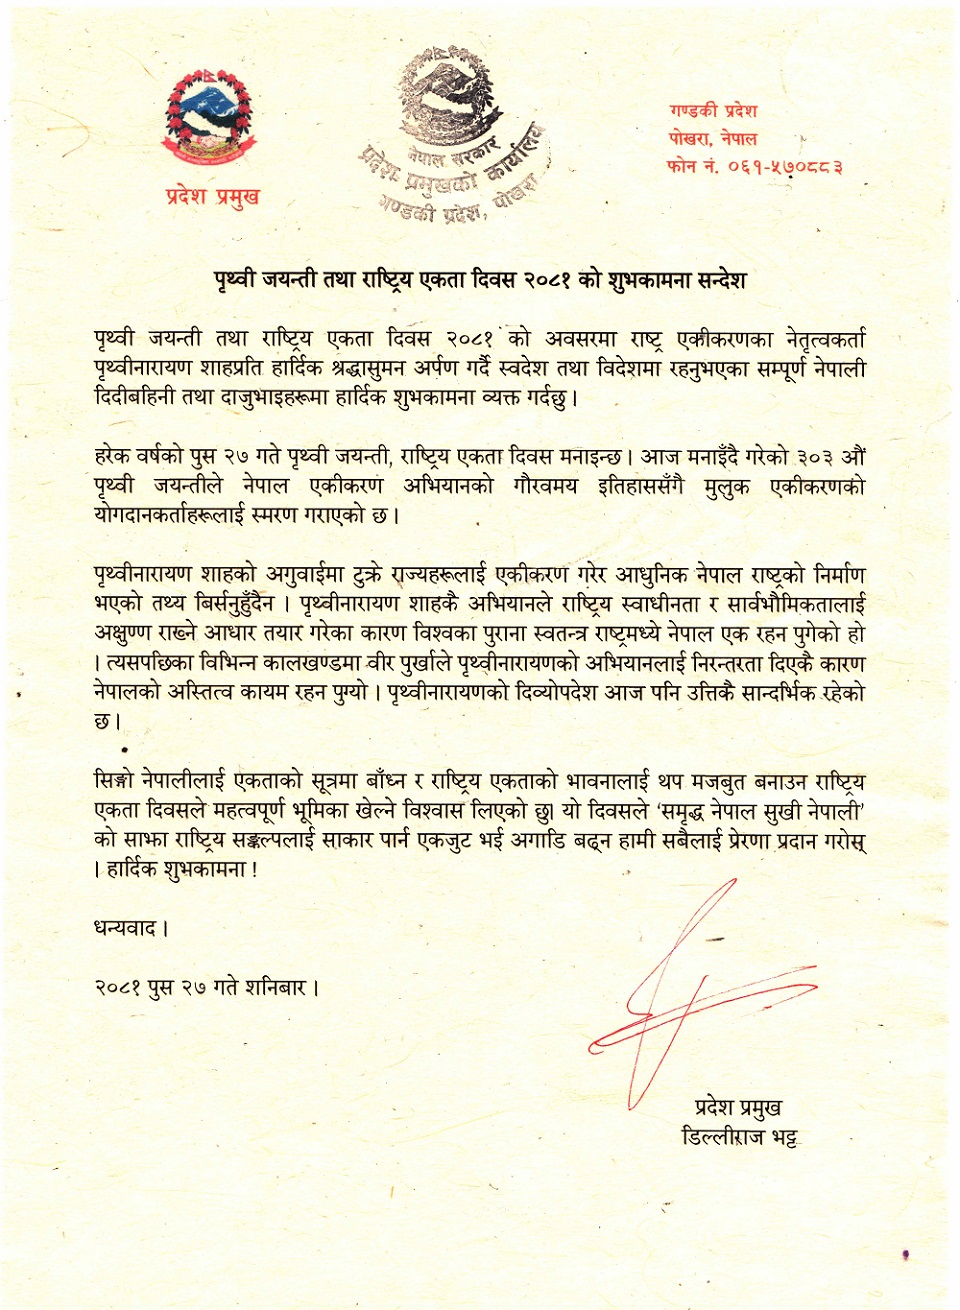 प्रदेश प्रमुख
नेपाल सरकार
प्रदेश प्रमुखको कार्यालय
गण्डकी प्रदेश, पोखरा
गण्डकी प्रदेश
पोखरा, नेपाल
फोन नं. ०६१-५७०८८३
पृथ्वी जयन्ती तथा राष्ट्रिय एकता दिवस २०८१ को शुभकामना सन्देश
पृथ्वी जयन्ती तथा राष्ट्रिय एकता दिवस २०८१ को अवसरमा राष्ट्र एकीकरणका नेतृत्वकर्ता
पृथ्वीनारायण शाहप्रति हार्दिक श्रद्धासुमन अर्पण गर्दै स्वदेश तथा विदेशमा रहनुभएका सम्पूर्ण नेपाली
दिदीबहिनी तथा दाजुभाइहरूमा हार्दिक शुभकामना व्यक्त गर्दछु ।
हरेक वर्षको पुस २७ गते पृथ्वी जयन्ती, राष्ट्रिय एकता दिवस मनाइन्छ । आज मनाइँदै गरेको ३०३ औं
पृथ्वी जयन्तीले नेपाल एकीकरण अभियानको गौरवमय इतिहाससँगै मुलुक एकीकरणको
योगदानकर्ताहरूलाई स्मरण गराएको छ ।
पृथ्वीनारायण शाहको अगुवाईमा टुक्रे राज्यहरूलाई एकीकरण गरेर आधुनिक नेपाल राष्ट्रको निर्माण
भएको तथ्य बिर्सनुहुँदैन । पृथ्वीनारायण शाहकै अभियानले राष्ट्रिय स्वाधीनता र सार्वभौमिकतालाई
अक्षुण्ण राख्ने आधार तयार गरेका कारण विश्वका पुराना स्वतन्त्र राष्ट्रमध्ये नेपाल एक रहन पुगेको हो
। त्यसपछिका विभिन्न कालखण्डमा वीर पुर्खाले पृथ्वीनारायणको अभियानलाई निरन्तरता दिएकै कारण
नेपालको अस्तित्व कायम रहन पुग्यो । पृथ्वीनारायणको दिव्योपदेश आज पनि उत्तिकै सान्दर्भिक रहेको
छ ।
सिङ्गो नेपालीलाई एकताको सूत्रमा बाँध्न र राष्ट्रिय एकताको भावनालाई थप मजबुत बनाउन राष्ट्रिय
एकता दिवसले महत्वपूर्ण भूमिका खेल्ने विश्वास लिएको छु। यो दिवसले ‘समृद्ध नेपाल सुखी नेपाली’
को साझा राष्ट्रिय सङ्कल्पलाई साकार पार्न एकजुट भई अगाडि बढ्न हामी सबैलाई प्रेरणा प्रदान गरोस्
। हार्दिक शुभकामना !
धन्यवाद ।
२०८१ पुस २७ गते शनिबार ।
प्रदेश प्रमुख
डिल्लीराज भट्ट